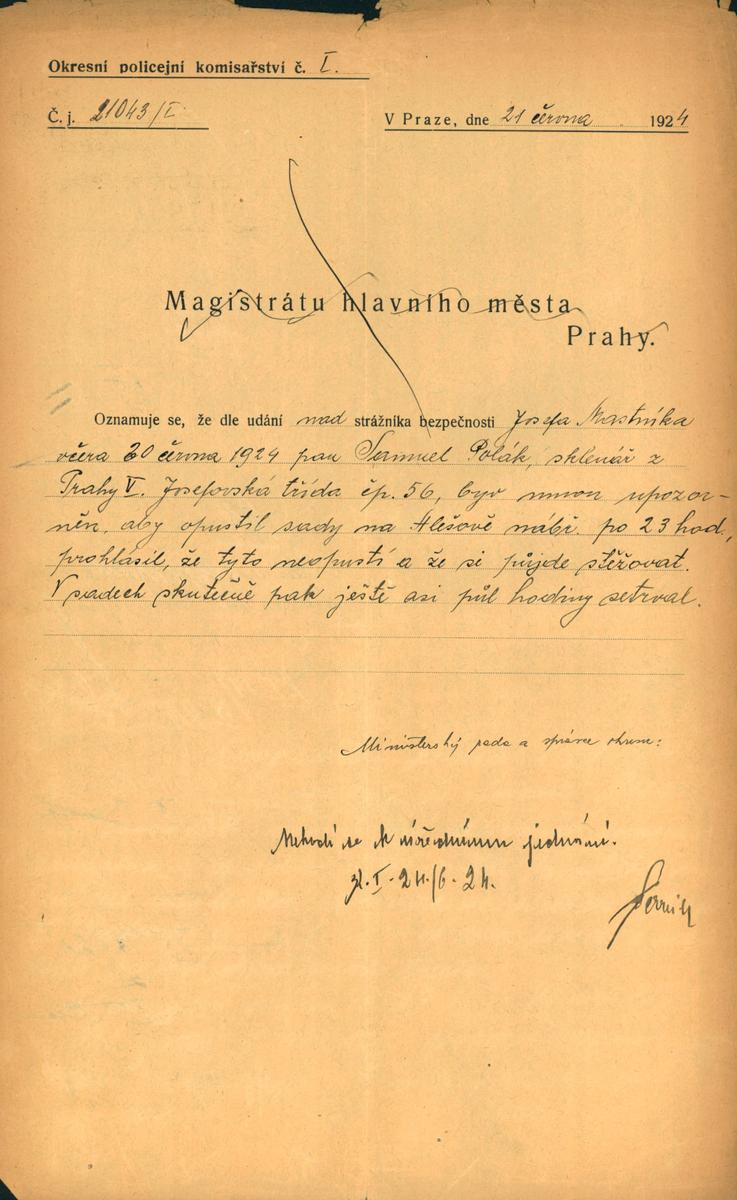 Okresní policejní komisařství č. I.
Č. j. 21043/I. V Praze, dne 21 června 1924
Magistrátu hlavního města
Prahy.
Oznamuje se, že dle udání nad strážníka bezpečnosti Josefa Mastníka
včera 20 června 1924 pan Samuel Polák, sklenář z
Prahy V. Josefovská třída čp. 56, byv mnou upozor-
něn, aby opustil sady na Alešově nábř. po 23 hod.,
prohlásil, že tyto neopustí a že si půjde stěžovat.
V sadech skutečně pak ještě asi půl hodiny setrval.
Ministerský rada a správce okresu:
Nehodí se k úřednímu jednání.
I. 24./6. 24.